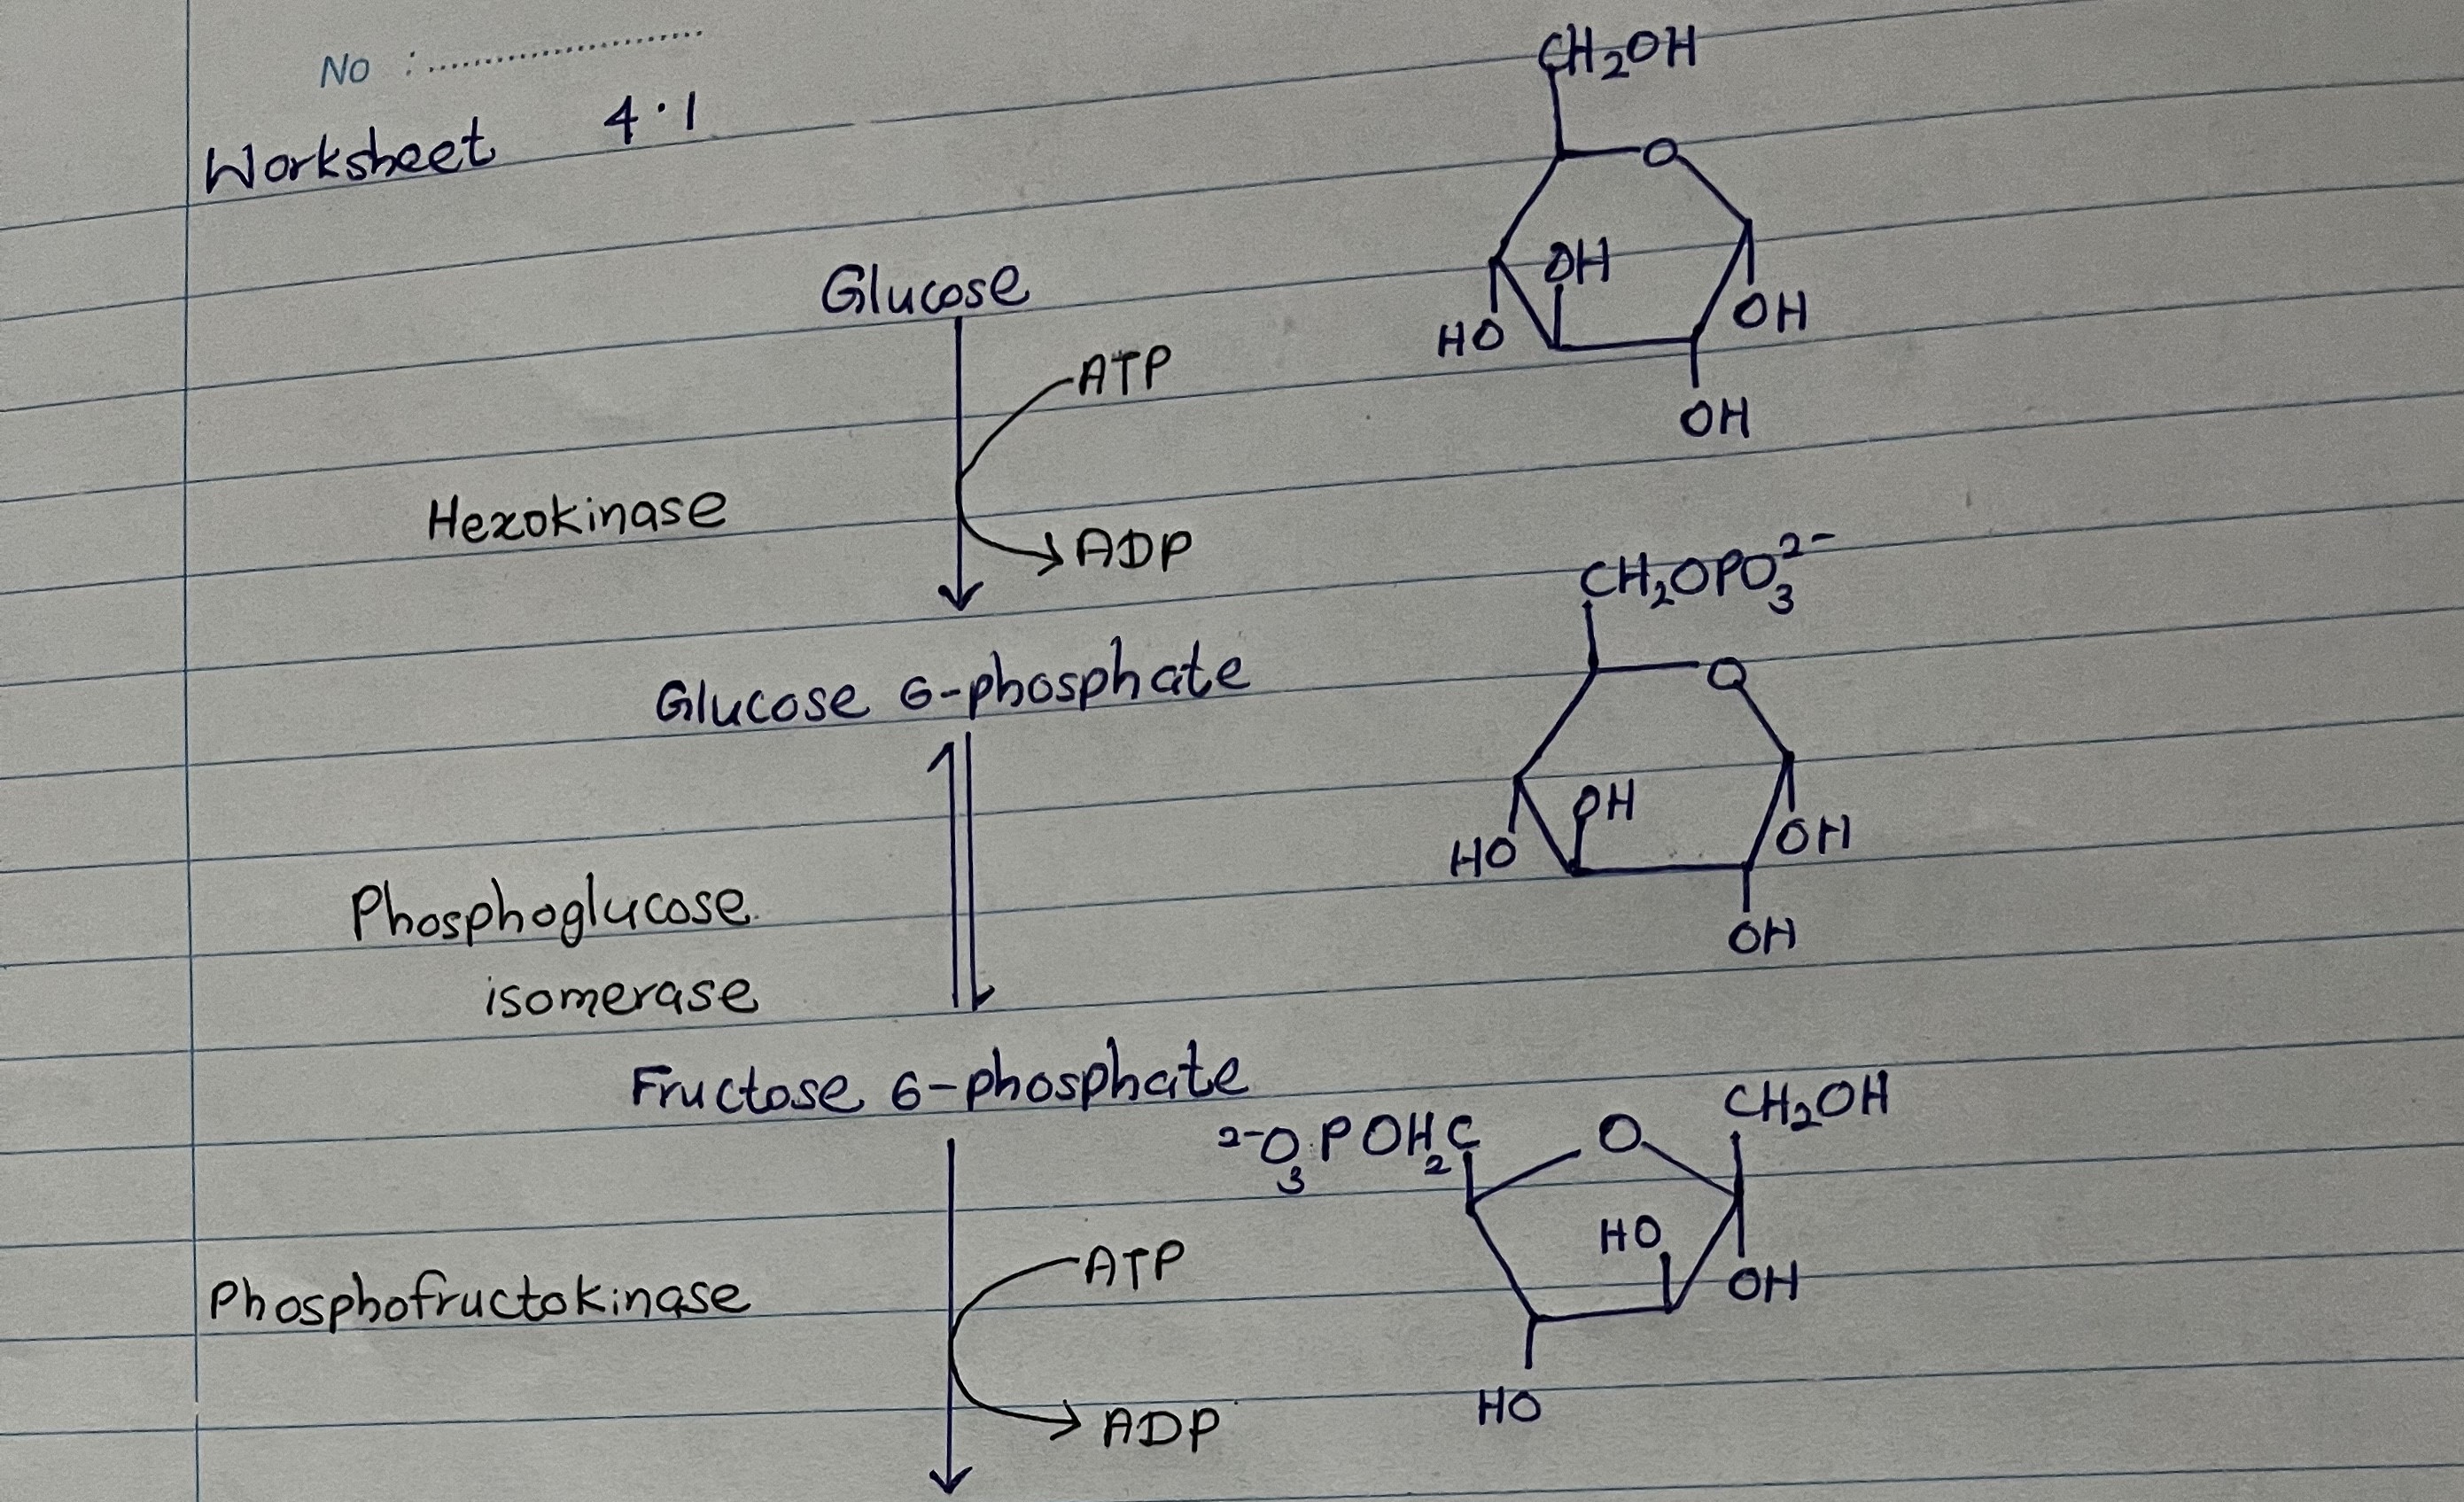 No :
Worksheet 4.1
CH₂OH
O
Glucose
OH
HO
OH
OH
ATP
Hexokinase
ADP
CH₂OPO₃²⁻
Glucose 6-phosphate
O
OH
HO
OH
OH
Phosphoglucose
isomerase
Fructose 6-phosphate
CH₂OH
²⁻O₃POH₂C
O
HO
OH
ATP
Phosphofructokinase
HO
ADP